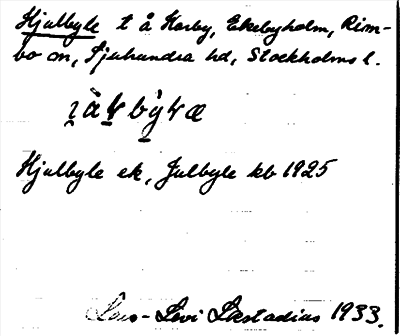 Hjulbyle t å Karby, Ekebyholm, Rim-
bo sn, Sjuhundra hd, Stockholms l.
Hjulbyle ek, Julbyle kb 1925
Lars-Levi Læstadius 1933.